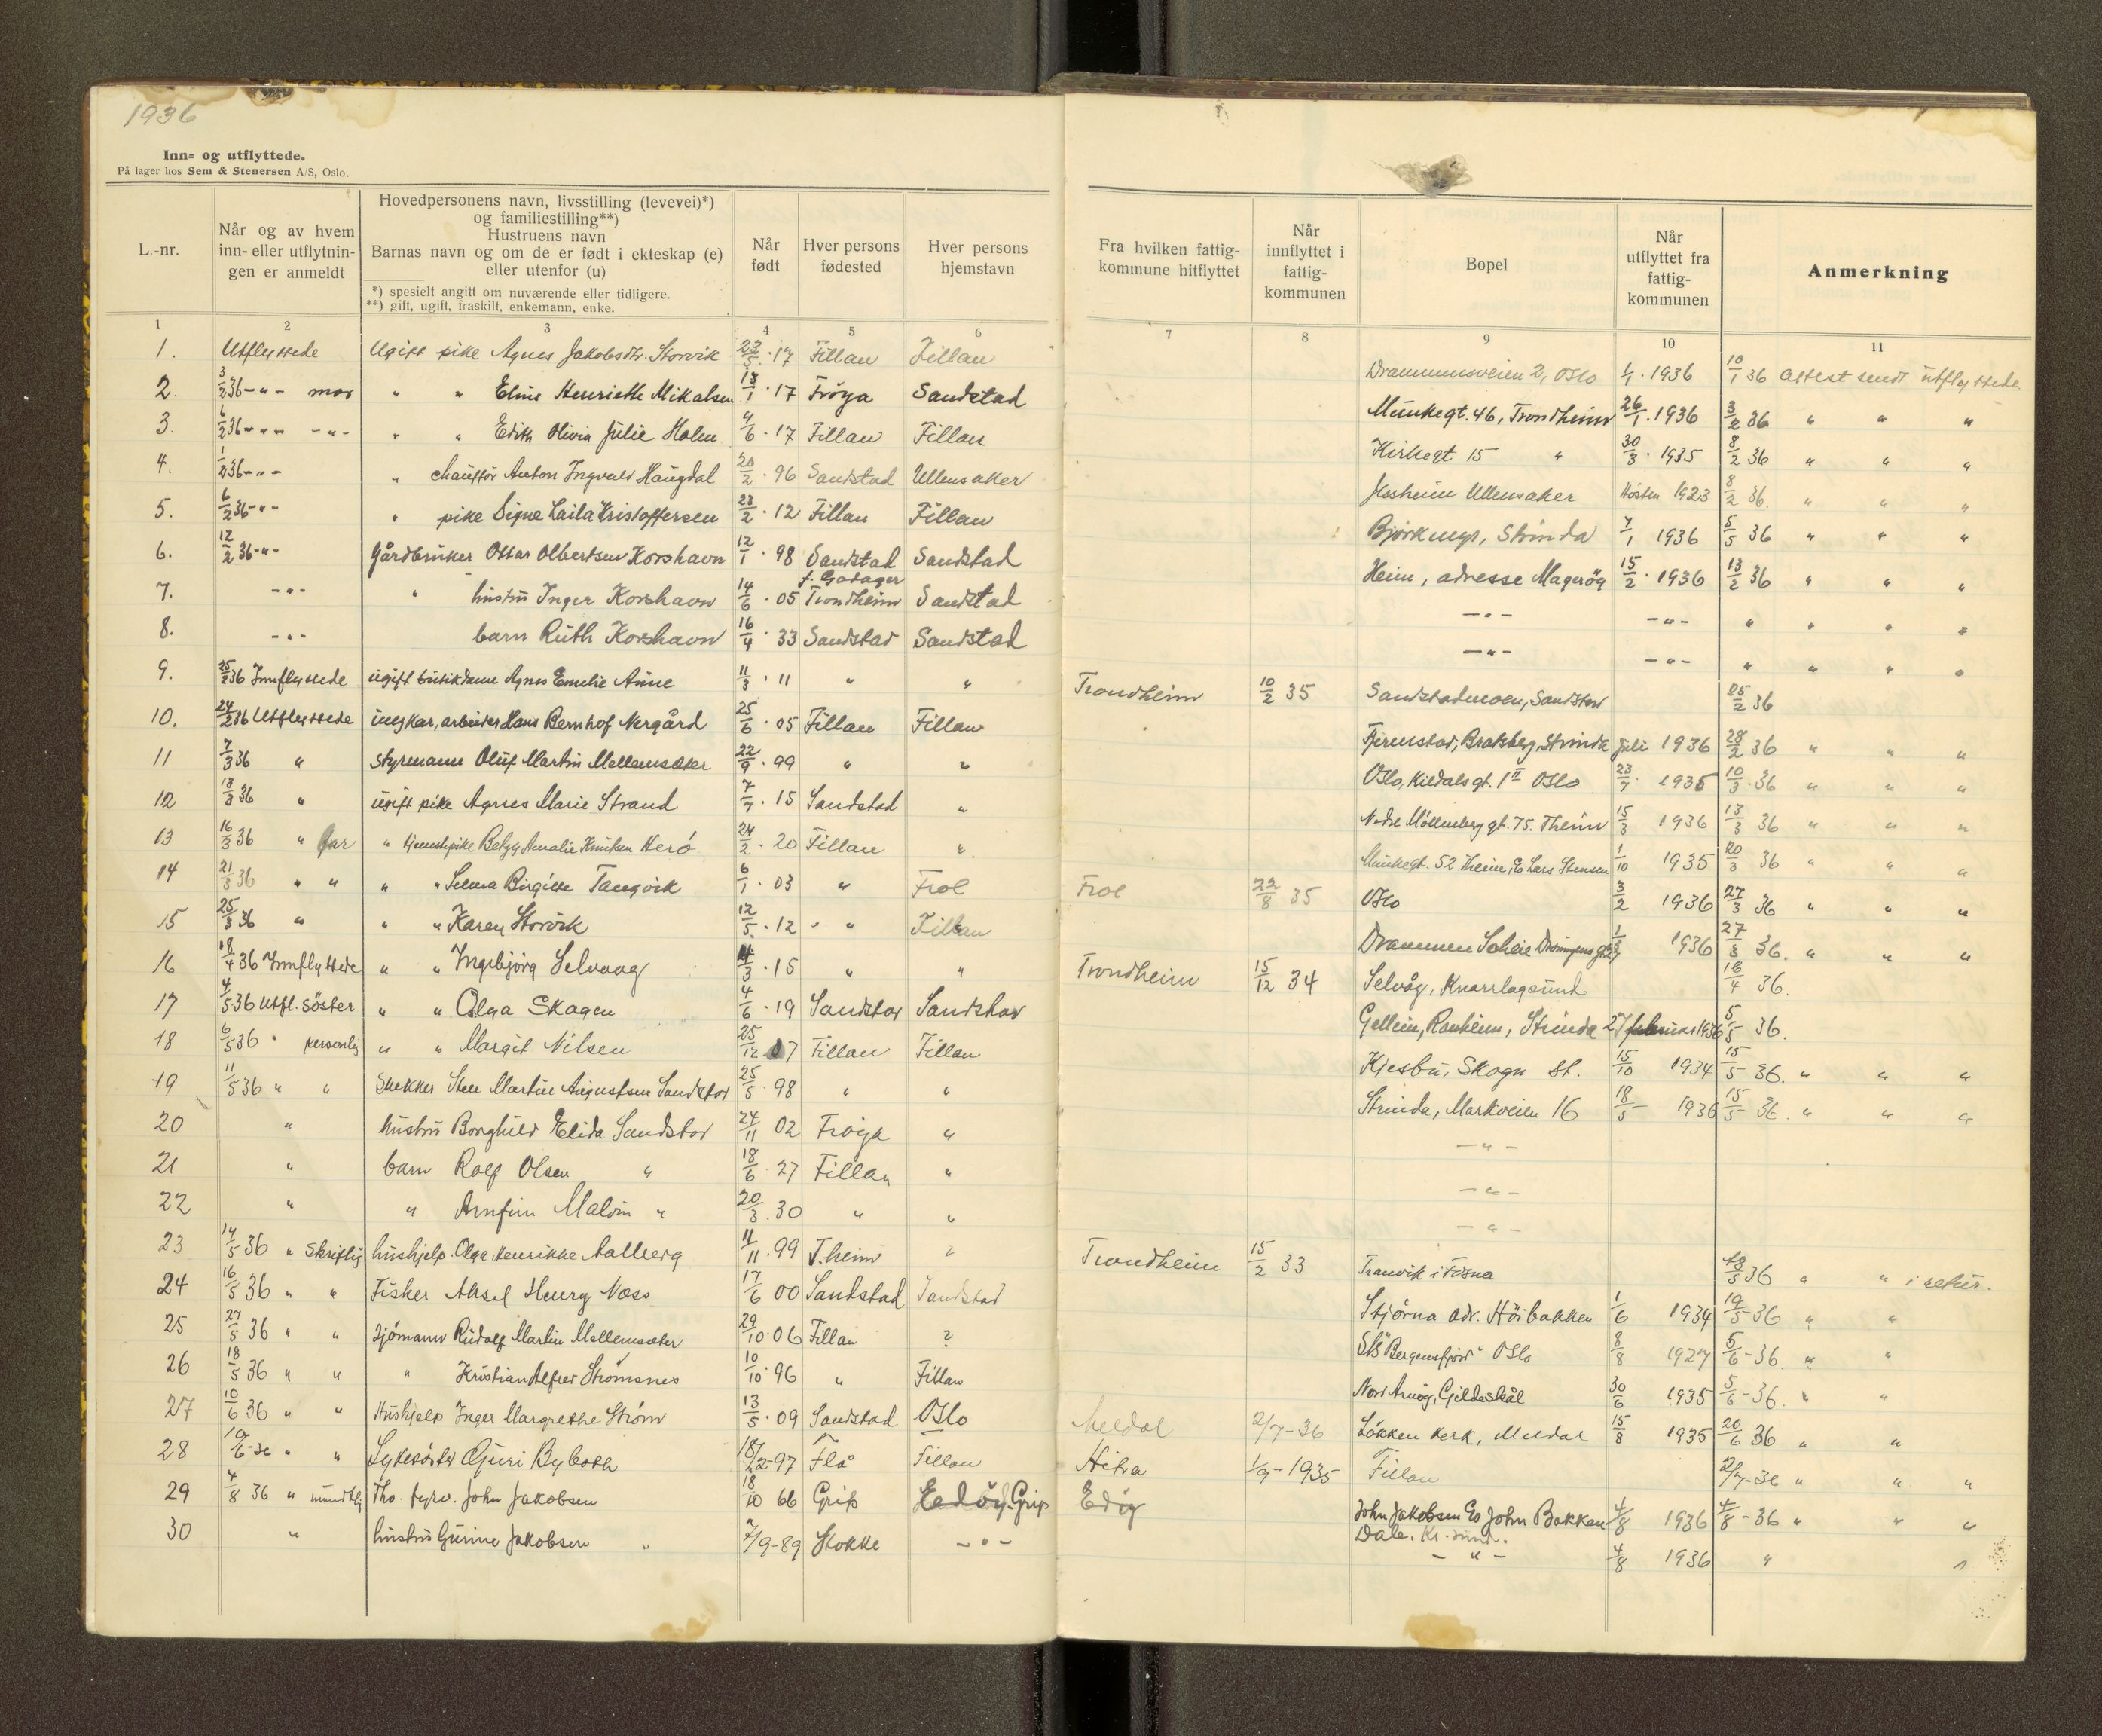 1936
Inn= og utflyttede.
På lager hos Sem & Stenersen A/S, Oslo.
L.-nr.
Når og av hvem inn- eller utflytnin- gen er anmeldt
Hovedpersonens navn, livsstilling (levevei)*)
og familiestilling**)
Hustruens navn
Barnas navn og om de er født i ekteskap (e)
eller utenfor (u)
*) spesielt angitt om nuværende eller tidligere.
**) gift, ugift, fraskilt, enkemann, enke.
Når født
Hver persons fødested
Hver persons hjemstavn
Fra hvilken fattig- kommune hitflyttet
Når innflyttet i fattig- kommunen
Bopel
Når utflyttet fra fattig- kommunen
Anmerkning
1 2 3 4 5 6 7 8 9 10 11
1. Utflyttede Ugift pike Agnes Jakobsdtr. Storvik 23/5 · 17 Fillan Fillan Drammensveien 2, Oslo 1/1 · 1936 10/1 36 Attest sendt utflyttede
2. 3/2 36 - " - mor " " Eline Henriette Mikalsen 13/1 · 17 Frøya Sandstad Munkegt. 46, Trondheim 26/1 · 1936 3/2 36 " " "
3. 6/2 36 - " - - " - " " Edith Olivia Julie Holm 4/6 · 17 Fillan Fillan Kirkegt 15 " 30/3 · 1935 8/2 36 " " "
4. 1/2 36 - " - " chauffør Anton Ingvald Haugdal 20/2 · 96 Sandstad Ullensaker Jessheim Ullensaker Høsten 1923 8/2 36. " " "
5. 6/2 36 - " - " pike Signe Laila Kristoffersen 23/2 · 12 Fillan Fillan Bjørkmyr, Strinda 7/1 1936 5/5 36 " " "
6. 12/2 36 - " - Gårdbruker Ottar Olbertsen Korshavn 12/1 · 98 Sandstad Sandstad Heim, adresse Magerøy 15/2 · 1936 13/2 36 " " "
7. - " - " hustru Inger Korshavn 14/6 · 05 f. Godager Trondheim Sandstad - " - - " - " " " "
8. - " - barn Ruth Korshavn 16/4 · 33 Sandstad Sandstad - " - - " - " " " "
9. 25/2 36 Innflyttede ugift butikdame Agnes Emelie Aune 11/3 · 11 " " Trondheim 10/2 35 Sandstadmoen, Sandstad 25/2 36
10. 24/2 36 Utflyttede ungkar, arbeider Hans Bernhof Nergård 25/6 · 05 Fillan Fillan Fjerenstad, Bratsberg, Strinda juli 1936 28/2 36 " " "
11 7/3 36 " Styrmann Oluf Martin Mellemsæter 22/9 · 99 " " Oslo, Kildalsgt. 1 II Oslo 23/7 · 1935 10/3 · 36 " " "
12 13/3 36 " ugift pike Agnes Marie Strand 7/7 · 15 Sandstad " Nedre Møllenberggt. 75. Theim 15/3 1936 13/3 36 " " "
13 16/3 36 " far " tjenestpike Amalie Knutsen Herø 24/2 · 20 Fillan " Munkegt. 52 Theim, Lars Stensen 1/10 1935 20/3 36 " " "
14 21/3 36 " " " " Selma Birgitte Tangvik 6/1 · 03 " Frol Frol 22/8 35 Oslo 3/2 1936 27/3 36 " " "
15 25/3 36 " " " Karen Storvik 12/5 · 12 " Fillan Drammen 1936 27/3 36. " " "
16 18/4 36 Innflyttede " " Ingebjørg Selvaag /3 · 15 " " Trondheim 15/12 34 Selvåg, Knarrlagsund 18/4 36.
17 4/5 36 Utfl. søster " " Olga Skagen 4/6 · 19 Sandstad Sandstad Gellein, Ranheim, Strinda 27 februar 1936 5/5 36.
18 6/5 36 " personlig " " Margit Nilsen 25/12 07 Fillan Fillan Kjesbu, Skogn st. 15/10 1934 15/5 36. " " "
19 11/5 36 " " Snekker Sten Martin Augustsen Sandstad 25/5 · 98 " " Strinda, Markveien 16 18/5 1936 15/5 36. " " "
20 " hustru Borghild Elida Sandstad 24/11 02 Frøya " - " -
21 " barn Rolf Olsen " 18/6 27 Fillan " - " -
22 " " Arnfinn Malvin " 20/3 30 " " - " -
23 14/5 36 " Skriftlig hushjelp. Olga Henrikke Aalberg 11/11 · 99 T.heim " Trondheim 15/2 33 Tranvik i Fosna 18/5 36 " " i retur.
24 16/5 36 " " Fisker Aksel Henry Næss 17/6 00 Sandstad Sandstad Stjørna adr. Høibakken 1/6 1934 19/5 36 " "
25 27/5 36 " " Sjømann Rudolf Martin Mellemsæter 29/10 · 06 Fillan ? S/S "Bergensfjord" Oslo 8/8 1927 5/6 - 36. " "
26 18/5 36 " " " Kristian Alfred Strømsnes 10/10 · 96 " Fillan Nord Arnøy, Gildeskål 30/6 1935 5/6 - 36. " "
27 10/6 36 " " Hushjelp Inger Margrethe Strøm 13/5 · 09 Sandstad Oslo Meldal 2/7 - 36 Løkken Verk, Meldal 15/8 1935 20/6 36 " "
28 19/6 - 36 " " Sykesøster Guri Byboth 18/2 - 97 Flå Fillan Hitra 1/9 - 1935 Fillan 2/7 - 36 " " "
29 4/8 36 " mundtlig Fho. fyrv. John Jakobsen 18/10 66 Grip Edøy. Grip Edøy John Jakobsen Eo John Bakken 4/8 1936 4/8 - 36 " " "
Dale. Kr. sund.
30 " hustru Gurine Jakobsen " 7/9 - 89 Stokke - " - - " - 4/8 1936 " "